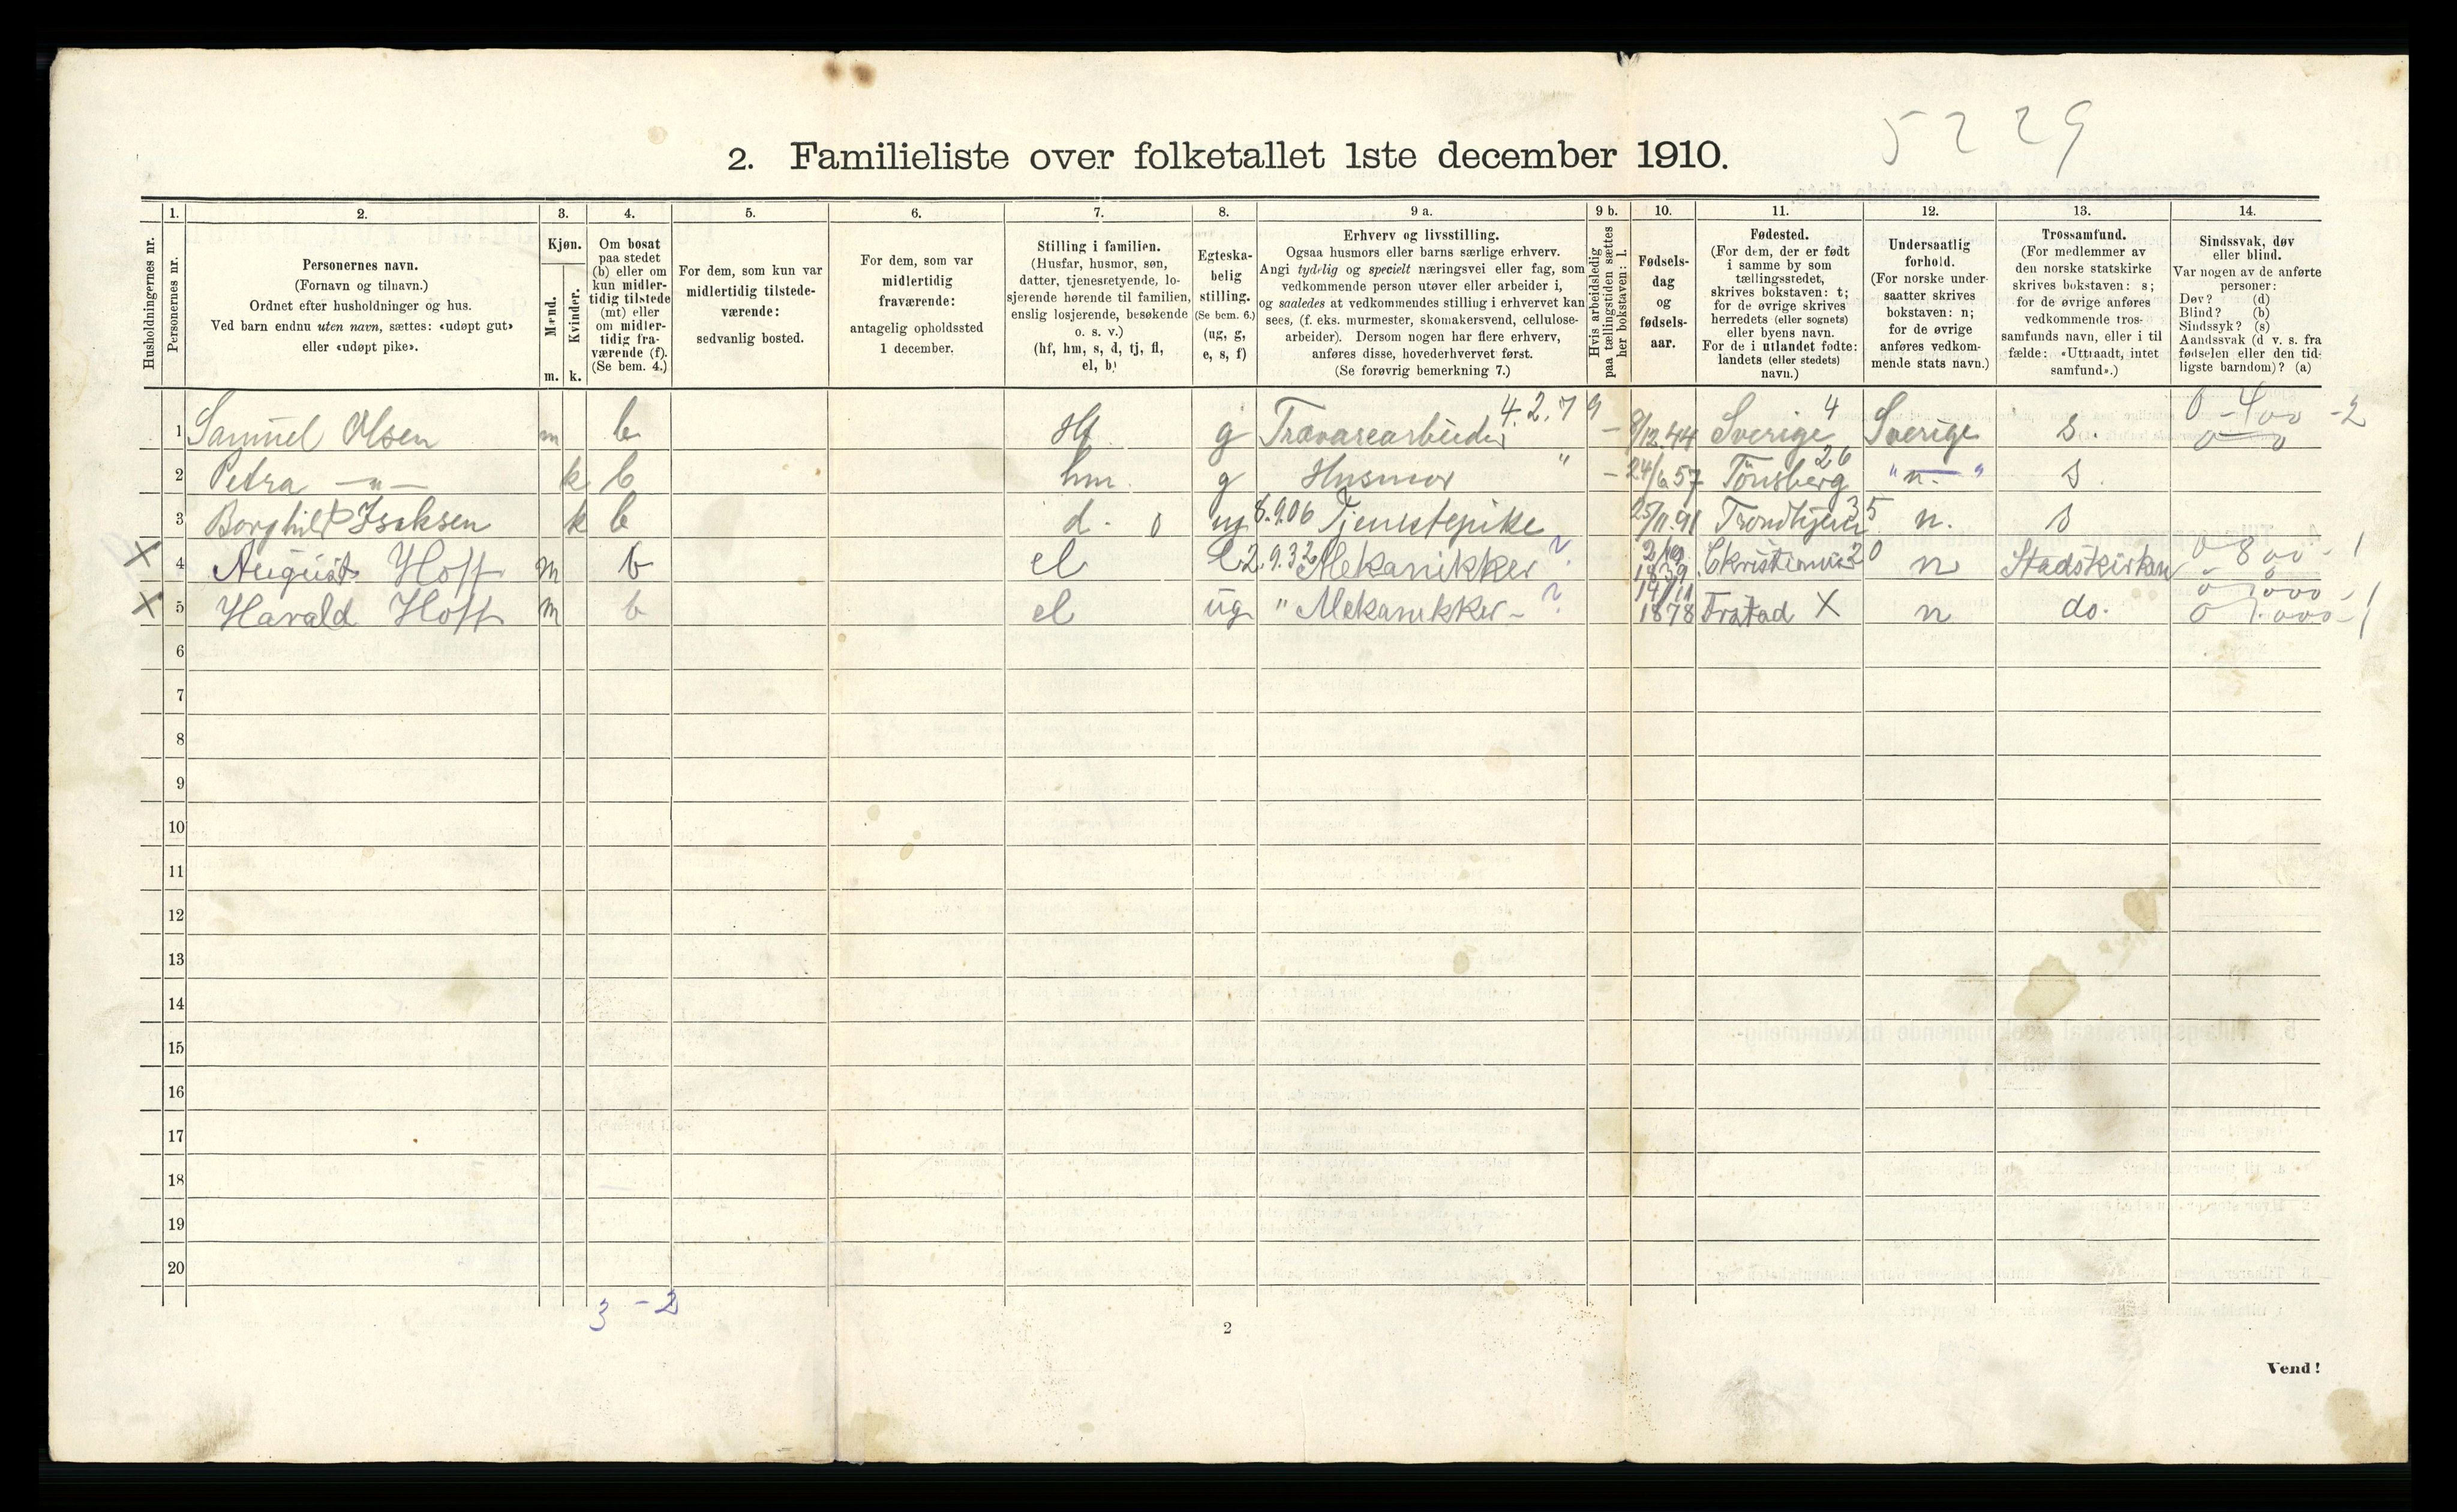 5229
2. Familieliste over folketallet 1ste december 1910.
1. 2. 3. 4. 5. 6. 7. 8. 9 a. 9 b. 10. 11. 12. 13. 14.
Husholdningernes nr.
Personernes nr.
Personernes navn.
(Fornavn og tilnavn.)
Ordnet efter husholdninger og hus.
Ved barn endnu uten navn, sættes: «udøpt gut»
eller «udøpt pike».
Kjøn.
Mænd.
Kvinder.
m. k.
Om bosat
paa stedet
(b) eller om
kun midler-
tidig tilstede
(mt) eller
om midler-
tidig fra-
værende (f).
(Se bem. 4.)
For dem, som kun var
midlertidig tilstede-
værende:
sedvanlig bosted.
For dem, som var
midlertidig
fraværende:
antagelig opholdssted
1 december.
Stilling i familien.
(Husfar, husmor, søn,
datter, tjenestetyende, lo-
sjerende hørende til familien,
enslig losjerende, besøkende
o. s. v.)
(hf, hm, s, d, tj, fl,
el, b)
Egteska-
belig
stilling.
(Se bem. 6.)
(ug, g,
e, s, f)
Erhverv og livsstilling.
Ogsaa husmors eller barns særlige erhverv.
Angi tydelig og specielt næringsvei eller fag, som
vedkommende person utøver eller arbeider i,
og saaledes at vedkommendes stilling i erhvervet kan
sees, (f. eks. murmester, skomakersvend, cellulose-
arbeider). Dersom nogen har flere erhverv,
anføres disse, hovederhvervet først.
(Se forøvrig bemerkning 7.)
Hvis arbeidsledig
paa tællingstiden sættes
her bokstaven: l.
Fødsels-
dag
og
fødsels-
aar.
Fødested.
(For dem, der er født
i samme by som
tællingsstedet,
skrives bokstaven: t;
for de øvrige skrives
herredets (eller sognets)
eller byens navn.
For de i utlandet fødte:
landets (eller stedets)
navn.)
Undersaatlig
forhold.
(For norske under-
saatter skrives
bokstaven: n;
for de øvrige
anføres vedkom-
mende stats navn.)
Trossamfund.
(For medlemmer av
den norske statskirke
skrives bokstaven: s;
for de øvrige anføres
vedkommende tros-
samfunds navn, eller i til
fælde: «Uttraadt, intet
samfund».)
Sindssvak, døv
eller blind.
Var nogen av de anførte
personer:
Døv? (d)
Blind? (b)
Sindssyk? (s)
Aandssvak (d. v. s. fra
fødselen eller den tid-
ligste barndom)? (a)
1 Samuel Olsen m b Hf g Trævarearbeider 4.2.79 - 9/12.44 Sverige 4 Sverige s. 0-400-2
2 Petra -"- k b hm. g Husmor " - 24/6 57 Tönsberg 26 " n. " s.
3 Borghild Isaksen k b d. 0 ug 8.9.06 Tjenestepike 25/11.91 Trondhjem 35 n. s
X 4 August Hoff m b el e 2.9.32 Mekanikker ? 1839 Christiania 20 n Stadskirken 0 800-1
X 5 Harald Hoff m b el ug " Mekanikker - ? 14/11 1878 Fr.stad X n do. 0 1.000-1
6
7
8
9
10
11
12
13
14
15
16
17
18
19
20
3 - 2
2
Vend!